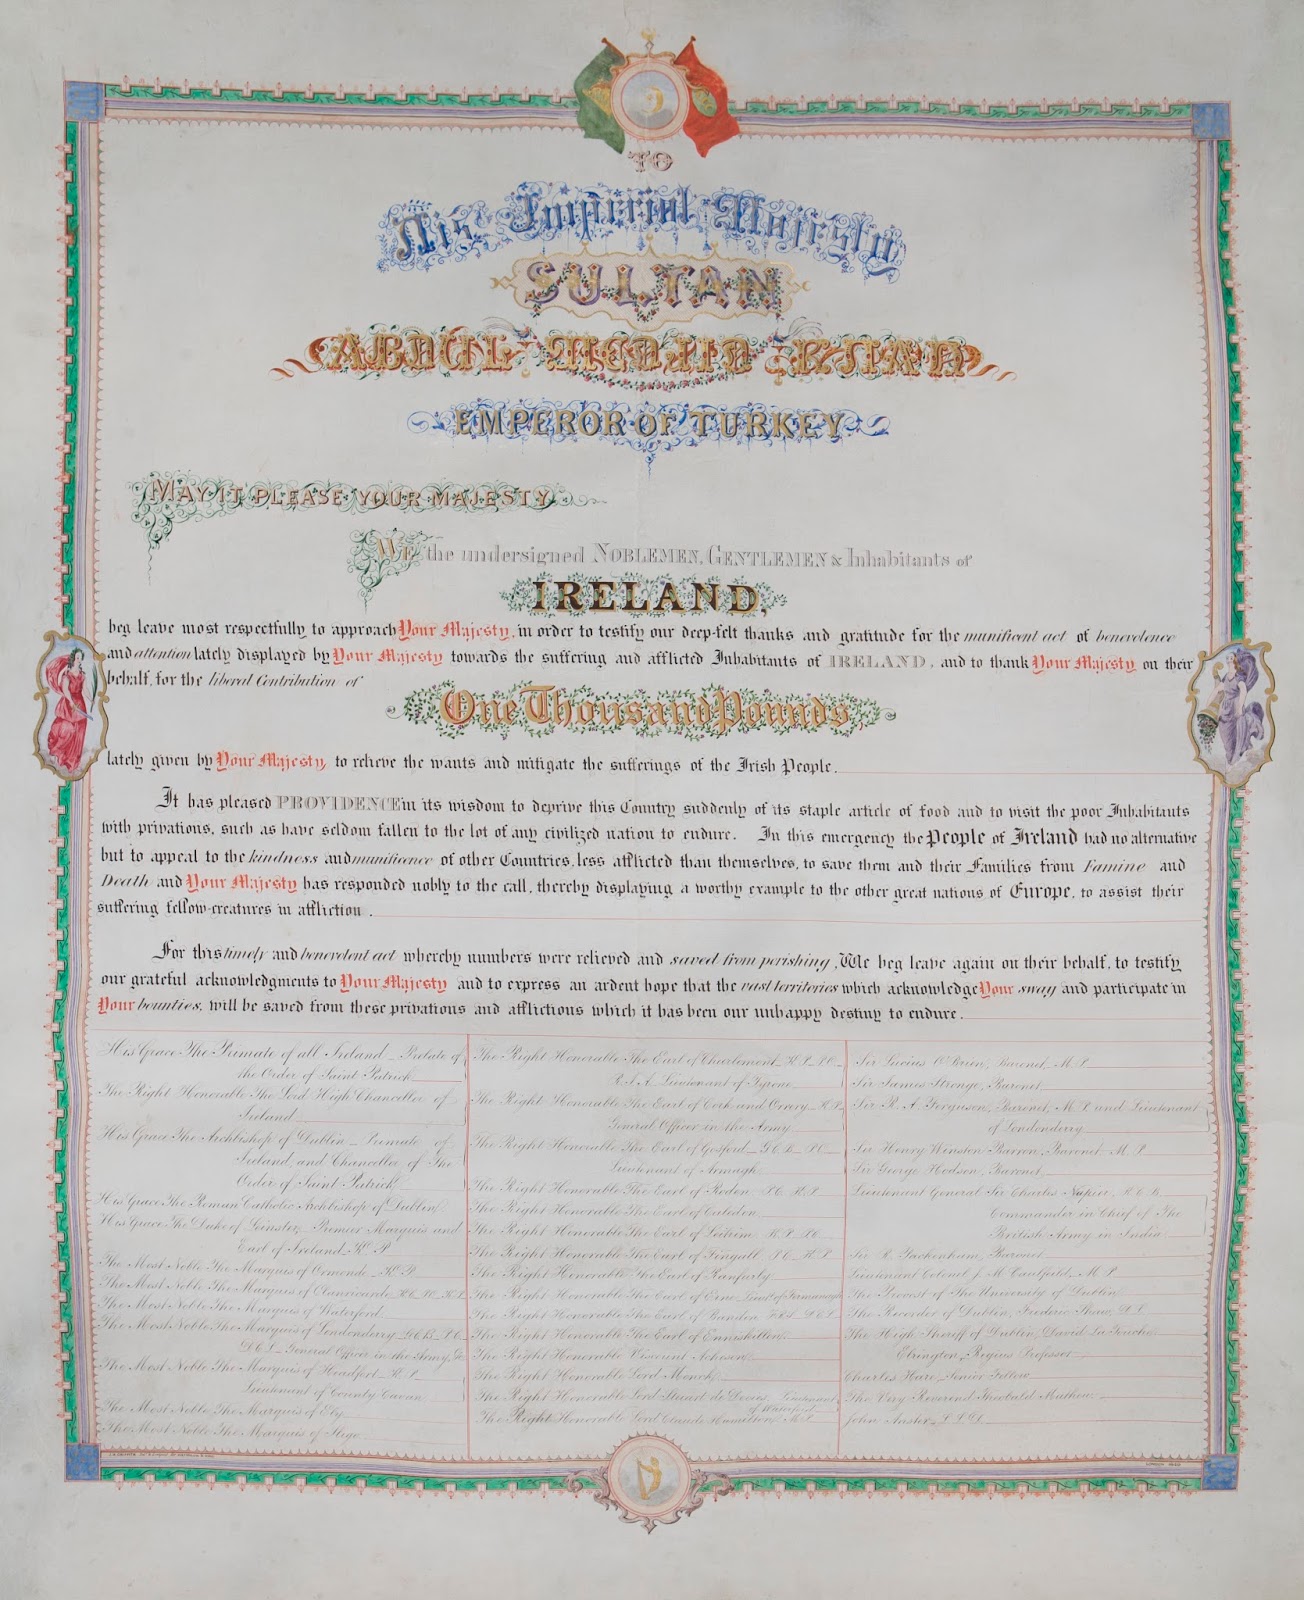 TO
His Imperial Majesty
SULTAN
ABDUL MEDJID KHAN
EMPEROR OF TURKEY
MAY IT PLEASE YOUR MAJESTY
WE the undersigned NOBLEMEN, GENTLEMEN & Inhabitants of
IRELAND,
beg leave most respectfully to approach Your Majesty, in order to testify our deep-felt thanks and gratitude for the munificent act of benevolence
and attention lately displayed by Your Majesty towards the suffering and afflicted Inhabitants of IRELAND, and to thank Your Majesty on their
behalf, for the liberal Contribution of
One Thousand Pounds,
lately given by Your Majesty, to relieve the wants and mitigate the sufferings of the Irish People.
It has pleased PROVIDENCE in its wisdom to deprive this Country suddenly of its staple article of food and to visit the poor Inhabitants
with privations, such as have seldom fallen to the lot of any civilized nation to endure. In this emergency the People of Ireland had no alternative
but to appeal to the kindness and munificence of other Countries, less afflicted than themselves, to save them and their Families from Famine and
Death and Your Majesty has responded nobly to the call, thereby displaying a worthy example to the other great nations of Europe, to assist their
suffering fellow-creatures in affliction.
For this timely and benevolent act whereby numbers were relieved and saved from perishing, We beg leave again on their behalf, to testify
our grateful acknowledgments to Your Majesty and to express an ardent hope that the vast territories which acknowledge Your sway and participate in
Your bounties, will be saved from these privations and afflictions which it has been our unhappy destiny to endure.
His Grace The Primate of all Ireland - Prelate of
the Order of Saint Patrick
The Right Honorable The Lord High Chancellor of
Ireland
His Grace The Archbishop of Dublin - Primate of
Ireland, and Chancellor of The
Order of Saint Patrick
His Grace The Roman Catholic Archbishop of Dublin
His Grace The Duke of Leinster, Premier Marquis and
Earl of Ireland
The Most Noble The Marquis of Ormonde - K. P.
The Most Noble The Marquis of Clanricarde
The Most Noble The Marquis of Waterford
The Most Noble The Marquis of Londonderry
General Officer in the Army
The Most Noble The Marquis of Headfort - K. P.
Lieutenant of County Cavan
The Most Noble The Marquis of Ely
The Most Noble The Marquis of Sligo
The Right Honorable The Earl of Charlemont
Lieutenant of Tyrone
The Right Honorable The Earl of Cork and Orrery - K. P.
General Officer in the Army
The Right Honorable The Earl of Gosford
Lieutenant of Armagh
The Right Honorable The Earl of Roden
The Right Honorable The Earl of Caledon
The Right Honorable The Earl of Leitrim
The Right Honorable The Earl of Fingall
The Right Honorable The Earl of Ranfurly
The Right Honorable The Earl of Erne, Lieut. of Fermanagh
The Right Honorable The Earl of Bandon
The Right Honorable The Earl of Enniskillen
The Right Honorable Viscount Acheson
The Right Honorable Lord Monck
The Right Honorable Lord Stuart de Decies - Lieutenant
of Waterford
The Right Honorable Lord Claude Hamilton, M. P.
Sir Lucius O'Brien, Baronet, M. P.
Sir James Stronge, Baronet
Sir R. A. Ferguson, Baronet, M. P. and Lieutenant
of Londonderry
Sir Henry Winston Barron, Baronet, M. P.
Sir George Hodson, Baronet
Lieutenant General Sir Charles Napier
Commander in Chief of The
British Army in India
Sir R. Packenham, Baronet
Lieutenant Colonel J. M. Caulfield, M. P.
The Provost of The University of Dublin
The Recorder of Dublin, Frederic Shaw
The High Sheriff of Dublin, David La Touche
Elrington, Regius Professor
Charles Hare, Senior Fellow
The Very Reverend Theobald Mathew
John Anster, L L D